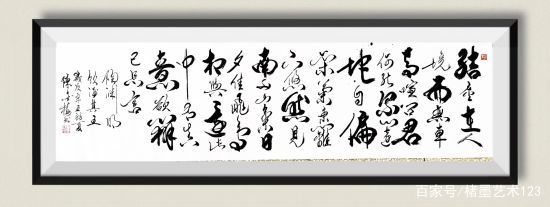 結廬在人
境而無車
馬喧問君
何能尔心遠
地自偏
采菊東籬
下悠然見
南山山氣日
夕佳飛鳥
相與還此
中有真
意欲辨
已忘言
陶渊明
飲酒其五
百家号/楮墨艺术123